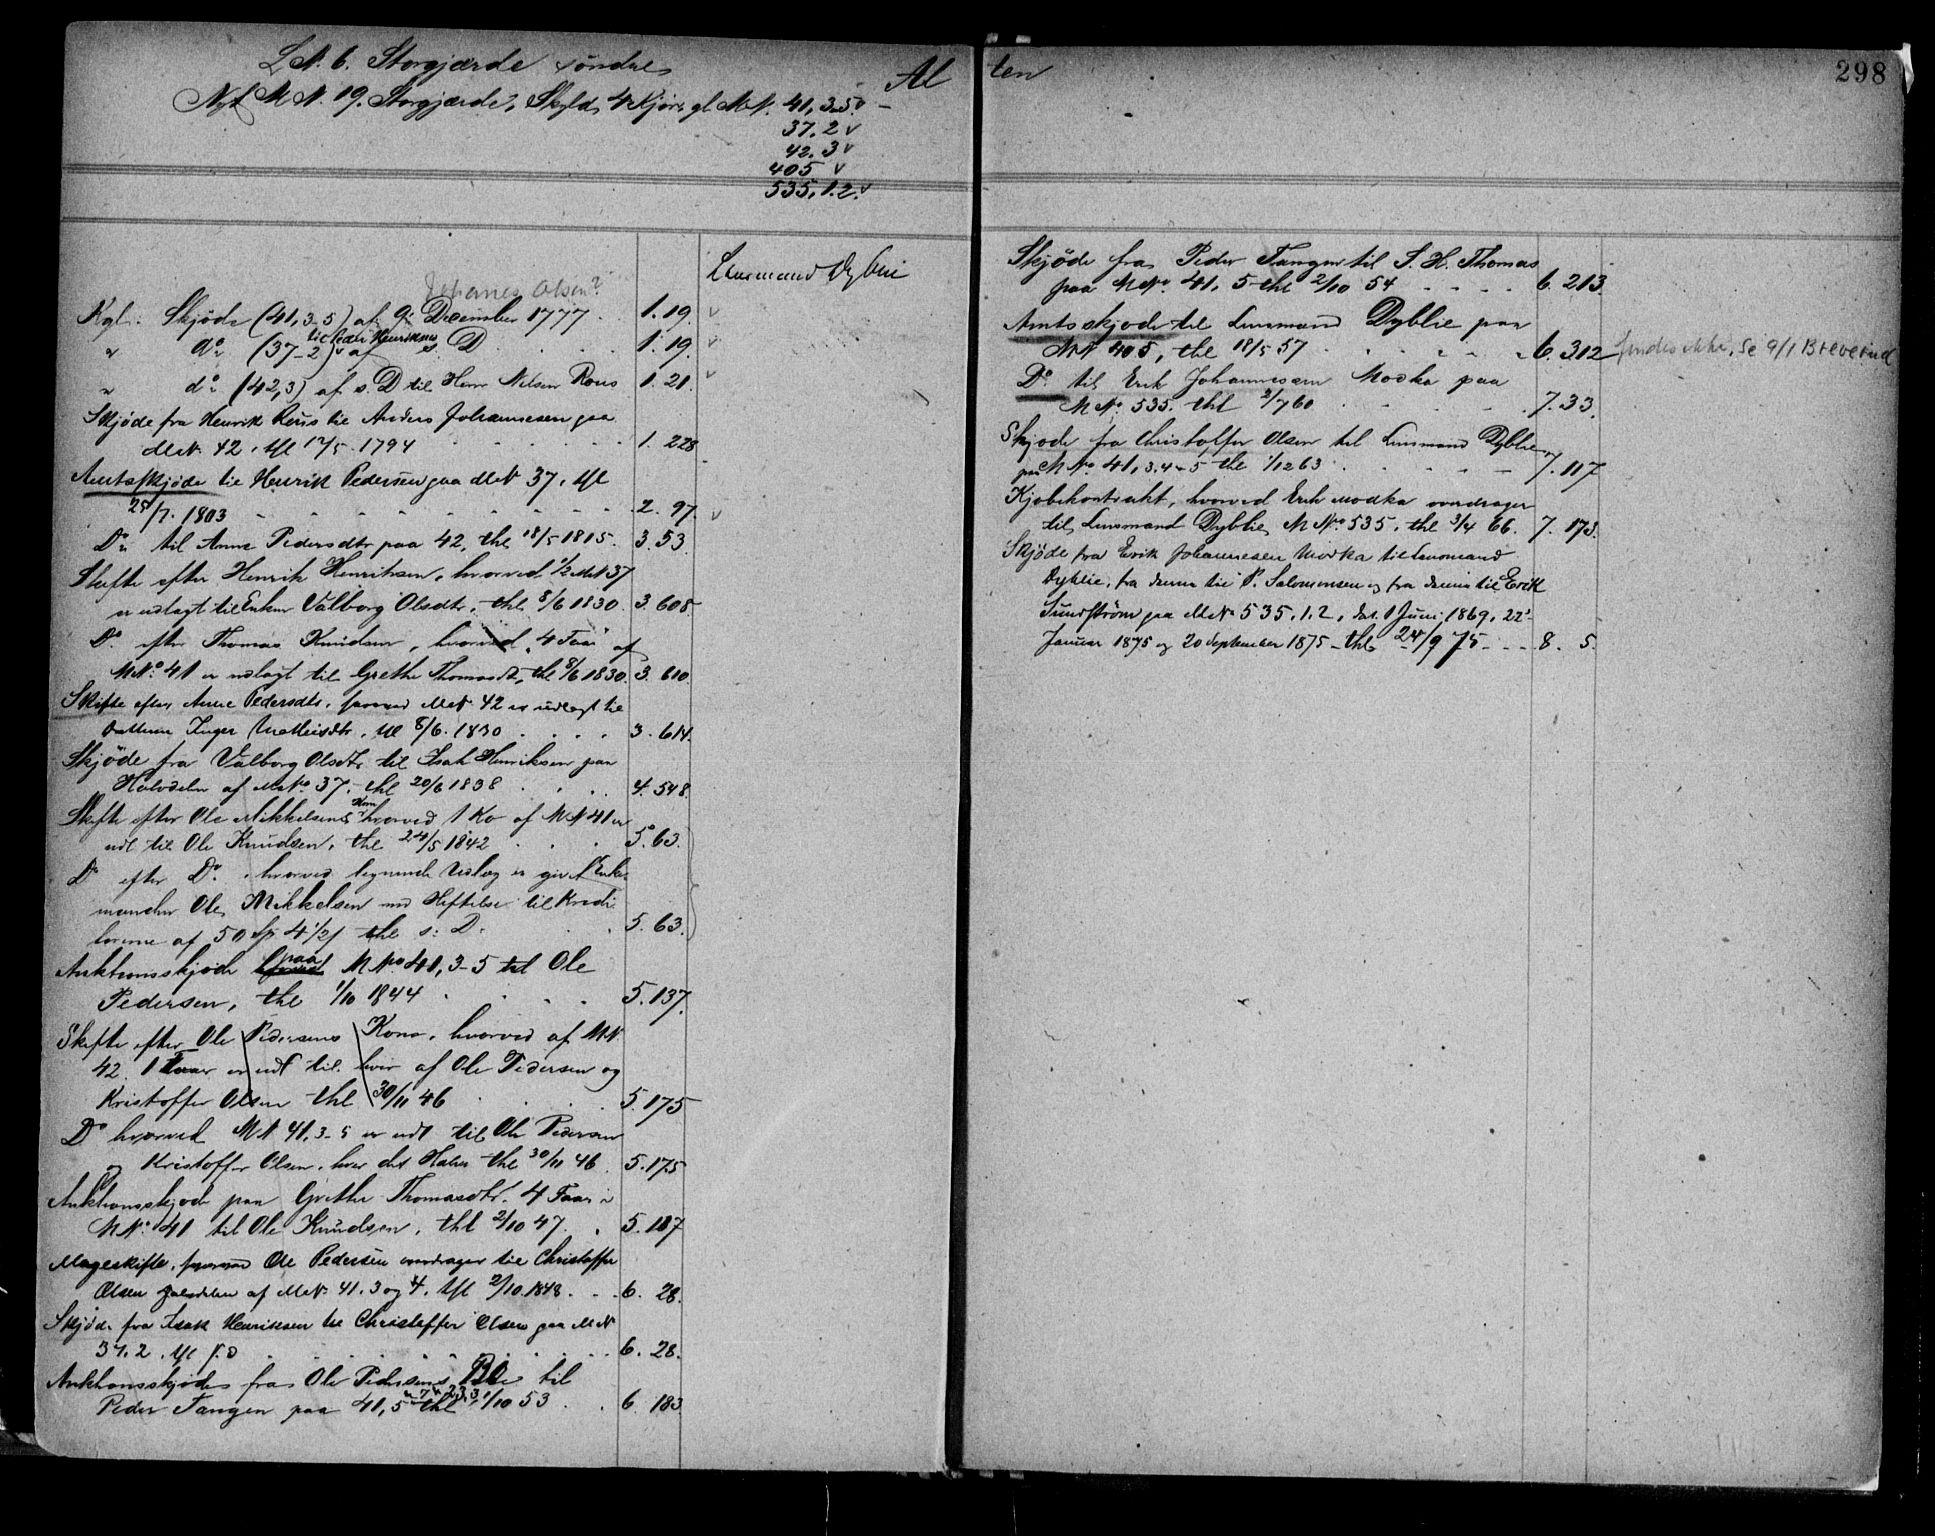 L.N. 6. Storgjærde søndre
Al ten
298
Nyt M.N. 19. Storgjærde, Skyld, 4 Kjør, gl. M.N. 41, 3-5 v
37. 2 v
42. 3 v
405 v
535, 1.2. v
Lensmand Dyblie
Johanes Olsen?
Kgl. Skjöde (41, 3-5) af 9 December 1777 . 1. 19. v
" do (37-2) v af s. D 1. 19. v
til Peder Henriksen
" do (42,3) af s. D til Henr Nilsen Rous 1. 21. v
Skjöde fra Henrik Reus til Anders Johannesen paa
M.N. 42, thl 17/5 1794 1. 228
Amtsskjöde til Henrik Pedersen paa M.N. 37, thl
25/7. 1803 2. 97. v
Do til Anne Pedersdtr paa 42, thl 18/5 1815. 3. 53
Skifte efter Henrik Henriksen, hvorved 1/2 M.N. 37
er udlagt til Enken Valborg Olsdtr, thl 8/6 1830. 3. 608
Do efter Thomas Knudsen, hvorved 4 Faar af
M.No. 41 er udlagt til Grethe Thomasdt, thl 8/6 1830. 3. 610.
Skifte efter Anne Pedersdtr, hvorved M.N. 42 er udlagt til
Datteren Inger Mathisdtr, thl 8/6. 1830 . . . 3. 614.
Skjöde fra Valborg Olsdtr til Isak Henriksen paa
Halvdelen af M.No. 37. thl 20/6 1838 . . . 4. 548.
Skifte efter Ole Mikkelsens Kone hvorved 1 Ko af M.N. 41 er
udl til Ole Knudsen, thl 24/5 1842 . . . 5. 63.
Do efter Do, hvorved lignende Udlæg er givet Enke-
manden Ole Mikkelsen med Heftelse til Kredi-
torerne af 50 Sp 4 1/2 thl s. D. 5. 63.
Auktionsskjöde paa M.No 41, 3-5 til Ole
Pedersen, thl 1/10 1844 . . . . 5. 137.
Skifte efter Ole Pedersens Kone, hvorved af M.N.
42. 1 Faar er udl til hver af Ole Pedersen og
Kristoffer Olsen thl 30/11 46 . . . 5. 175
Do hvorved M.N. 41, 3-5 er udl til Ole Pedersen
og Kristoffer Olsen, hver det Halve thl 30/11 46. 5. 175
Auktionsskjöde paa Grethe Thomasdtr. 4 Faar i
M.No. 41 til Ole Knudsen, thl 2/10 47. . 5. 187
Mageskifte, hvorved Ole Pedersen overdrager til Christoffer
Olsen Halvdelen af M.N. 41. 3 og 4, thl 2/10. 1848. . . 6. 28.
Skjöde fra Isak Henriksen til Christoffer Olsen paa M.N
37. 2. thl s. D . . . . 6. 28.
Auktionsskjöde fra Ole Pedersens Bo til
Peder Tangen paa 41, 5 thl 1/10 53 . . 6. 183
Skjöde fra Peder Tangen til S. H. Thomas
paa M.No. 41, 5 thl 2/10 54 . . . . 6. 213.
Amtsskjöde til Lensmand Dyblie paa
M.N. 405, thl 18/5 57 . . . . 6. 312 findes ikke, se 9/1 Breverud
Do til Erik Johannesen Modka paa
M.No. 535. thl 2/7 60 . . . . 7. 33.
Skjøde fra Christoffer Olsen til Lensmand Dyblie
paa M.No. 41, 3. 4 - 5 thl 1/12 63 . . . . 7. 117
Kjøbekontrakt, hvorved Erik Modka overdrager
til Lensmand Dyblie M.No 535, thl 3/4 66. 7. 173.
Skjöde fra Erik Johannesen Modka til Lensmand
Dyblie, fra denne til P. Salomonsen og fra denne til Erik
Sundström paa M.No 535, 1. 2, dat. 1 Juni 1869, 22
Januar 1875 og 20 September 1875 - thl. 24/9 75 - . - 8. 5.